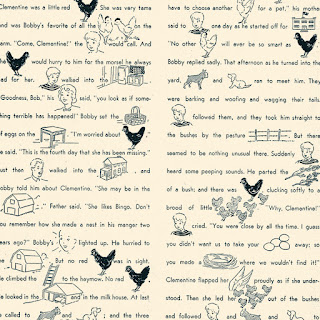 Clementine was a little red . She was very tame
and was Bobby's favorite of all the on the
arm. "Come, Clementine!" the would call. And
he would hurry to him for the morsel he always
ad for her. walked into the .
"Goodness, Bob," his said, "you look as if some-
thing terrible has happened!" Bobby set the
of eggs on the . "I'm worried about ,"
e said. "This is the fourth day that she has been missing."
Just then walked into the , and
obby told him about Clementine. "She may be in the
," Father said. "She likes Bingo. Don't
ou remember how she made a nest in his manger two
ears ago?" Bobby's lighted up. He hurried to
he . But no red was in sight.
e climbed the to the haymow. No red .
e looked in the and in the milk house. At last
e called to and , and the three
have to choose another for a pet," his mother
said to one day as he started off for .
"No other will ever be so smart as ,"
Bobby replied sadly. That afternoon as he turned into the
yard, and ran to meet him. They
were barking and woofing and wagging their tails.
followed them, and they took him straight to
the bushes by the pasture . But there
seemed to be nothing unusual there. Suddenly
heard some peeping sounds. He parted the
of a bush; and there was clucking softly to a
brood of little . "Why, Clementine!"
cried. "You were close by all the time. I guess
you didn't want us to take your away; so
you made a where we wouldn't find it!"
Clementine flapped her proudly as if she under-
stood. Then she led her out of the bushes
and followed and and